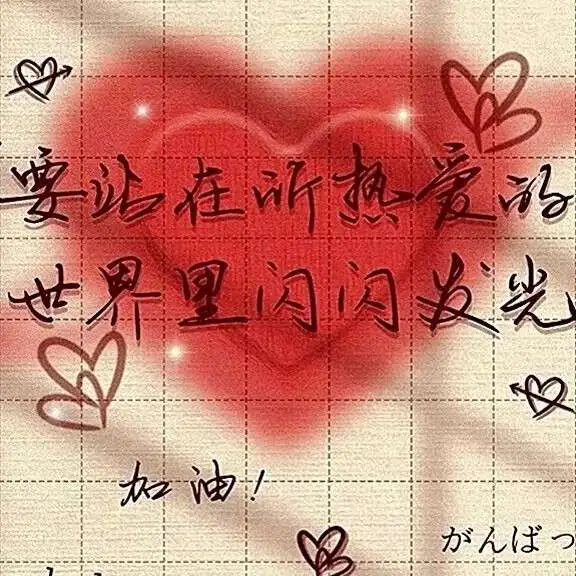 要站在所热爱的
世界里闪闪发光
加油!
がんばっ